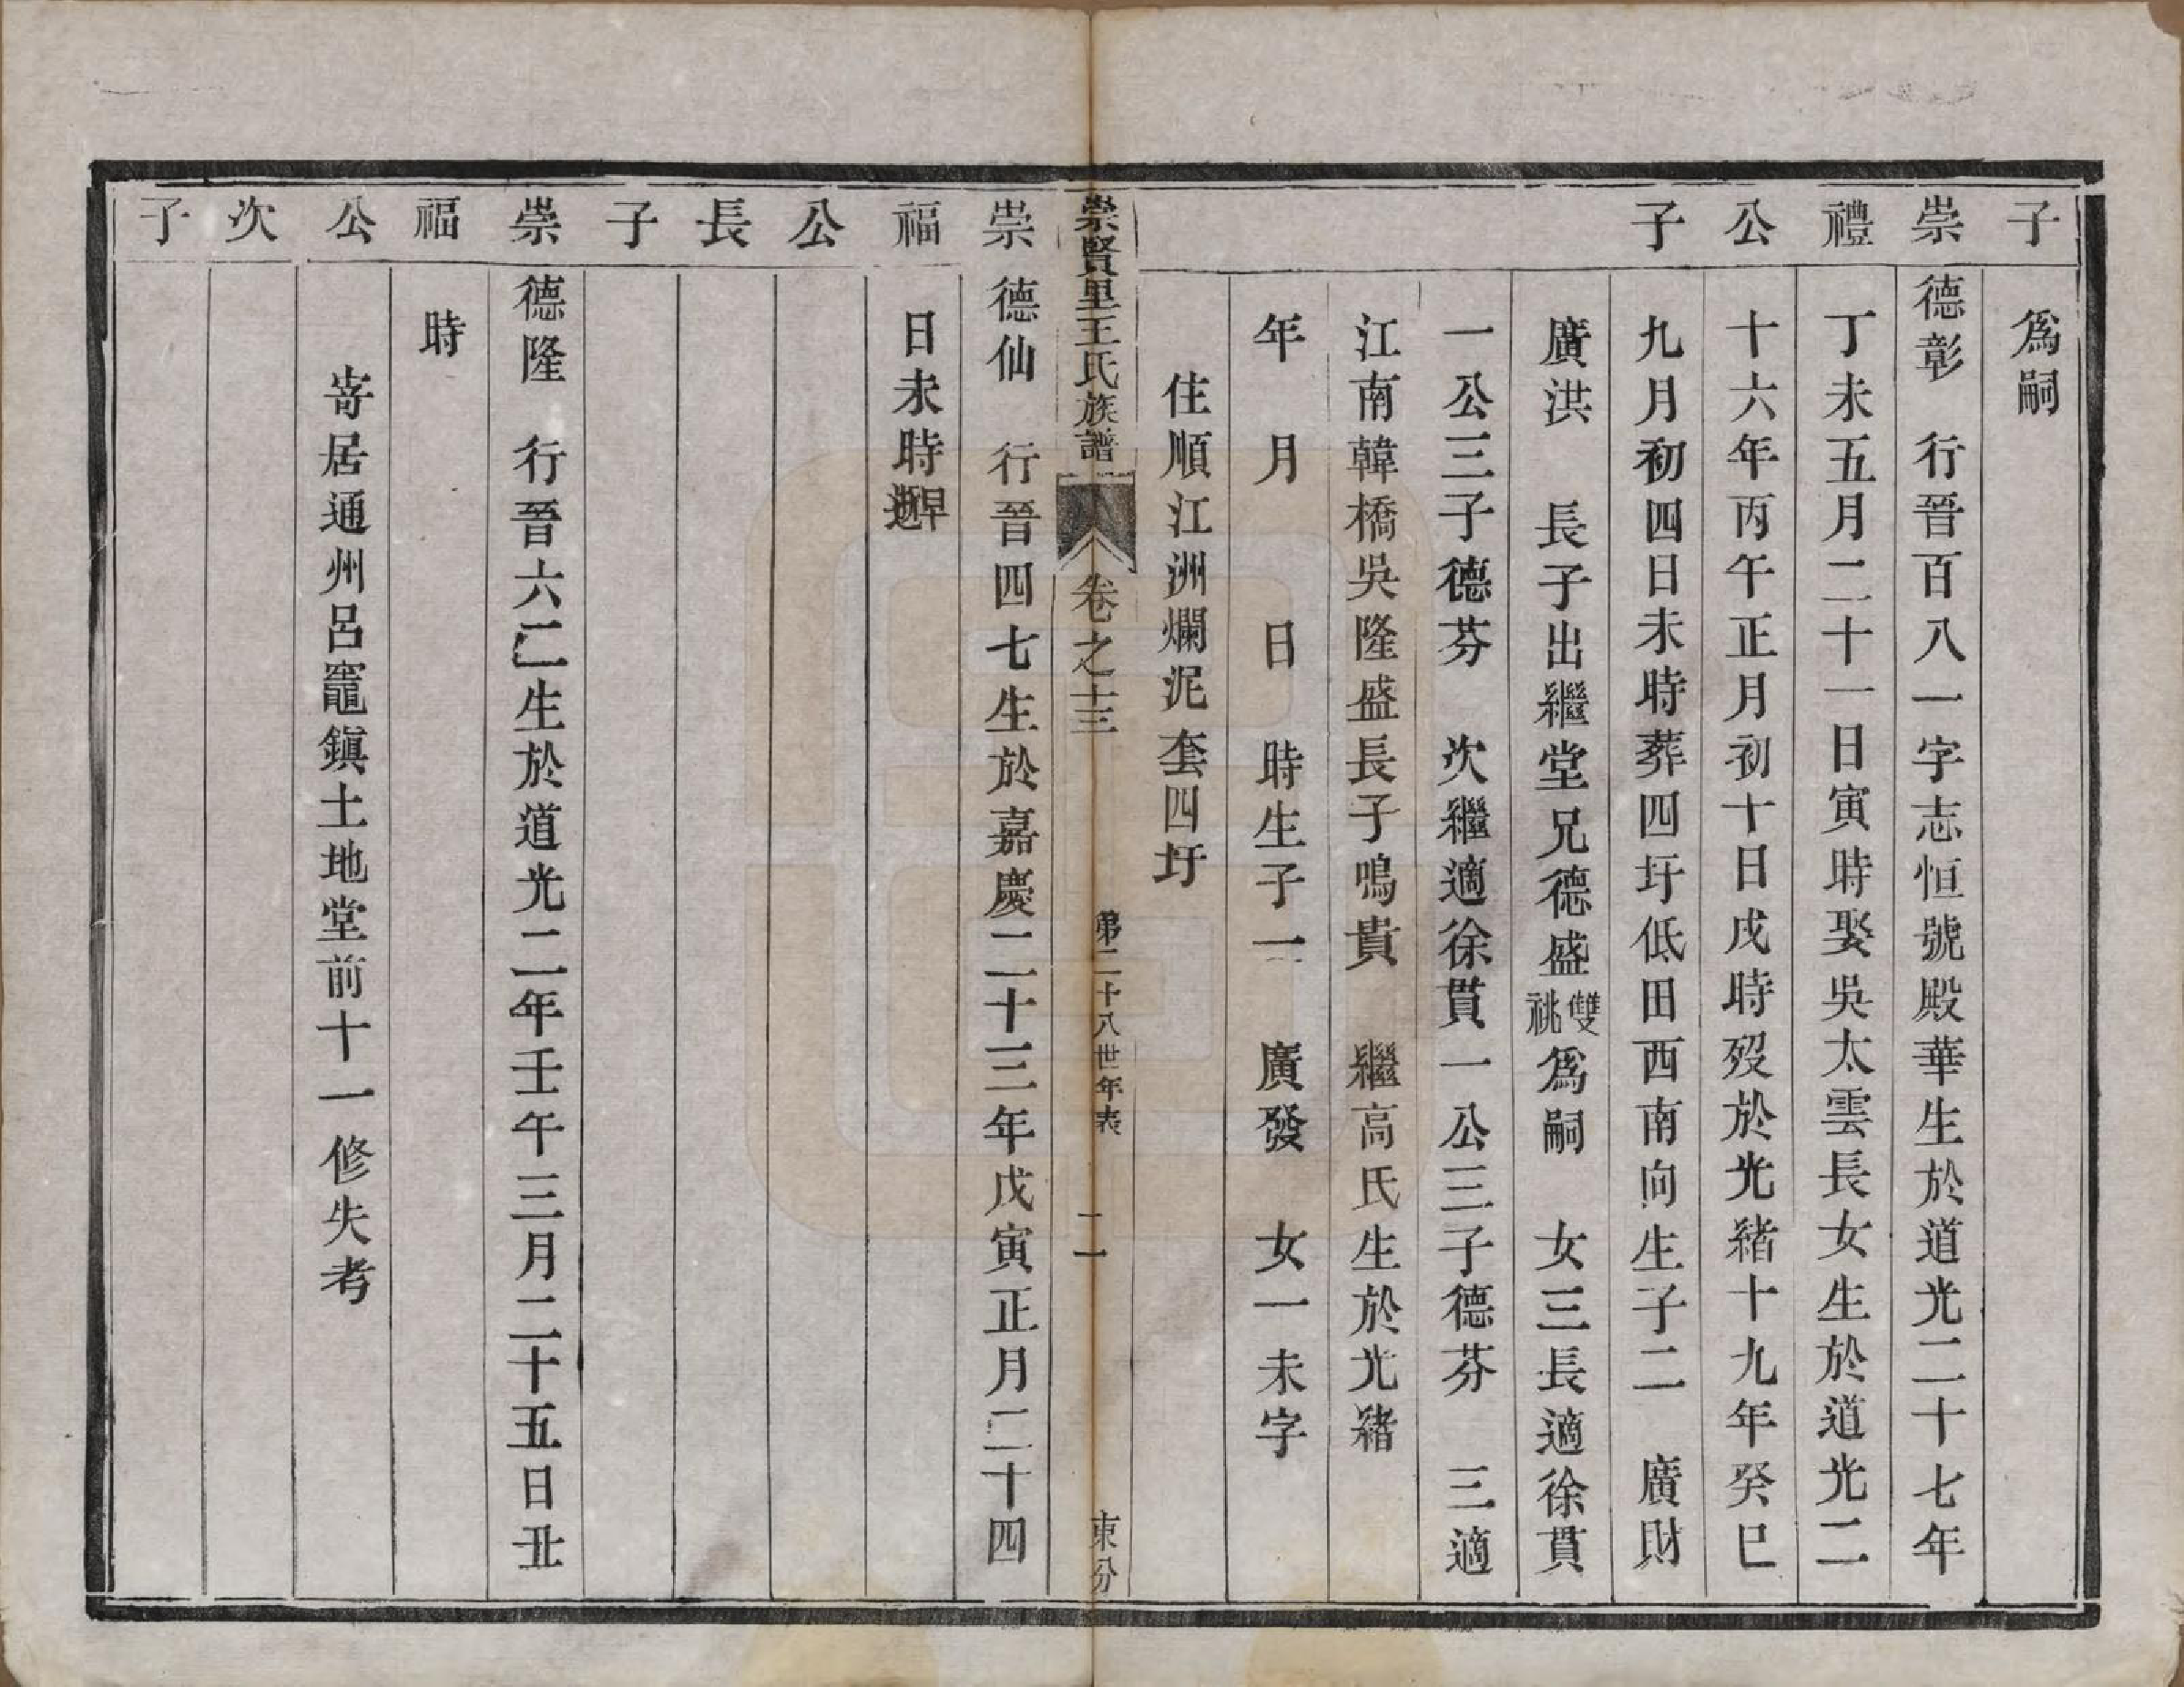 子　爲嗣
崇　德彰　行晉百八一字志恒號殿華生於道光二十七年
禮　丁未五月二十一日寅時娶吳太雲長女生於道光二
公　十六年丙午正月初十日戌時歿於光緒十九年癸巳
子　九月初四日未時葬四圩低田西南向生子二　廣財
廣洪　長子出繼堂兄德盛雙祧爲嗣　女三長適徐貫
一公三子德芬　次繼適徐貫一公三子德芬　三適
江南韓橋吳隆盛長子鳴貴　繼高氏生於光緒
年　月　　日　時生子一　廣發　女一未字
住順江洲爛泥套四圩
崇賢里王氏族譜　卷之十三　第二十八世年表　二　東分
崇　德仙　行晉四七生於嘉慶二十三年戊寅正月二十四
福　日未時早逝
公
長
子
崇　德隆　行晉六二生於道光二年壬午三月二十五日丑
福　時
公　寄居通州呂竈鎮土地堂前十一修失考
次
子